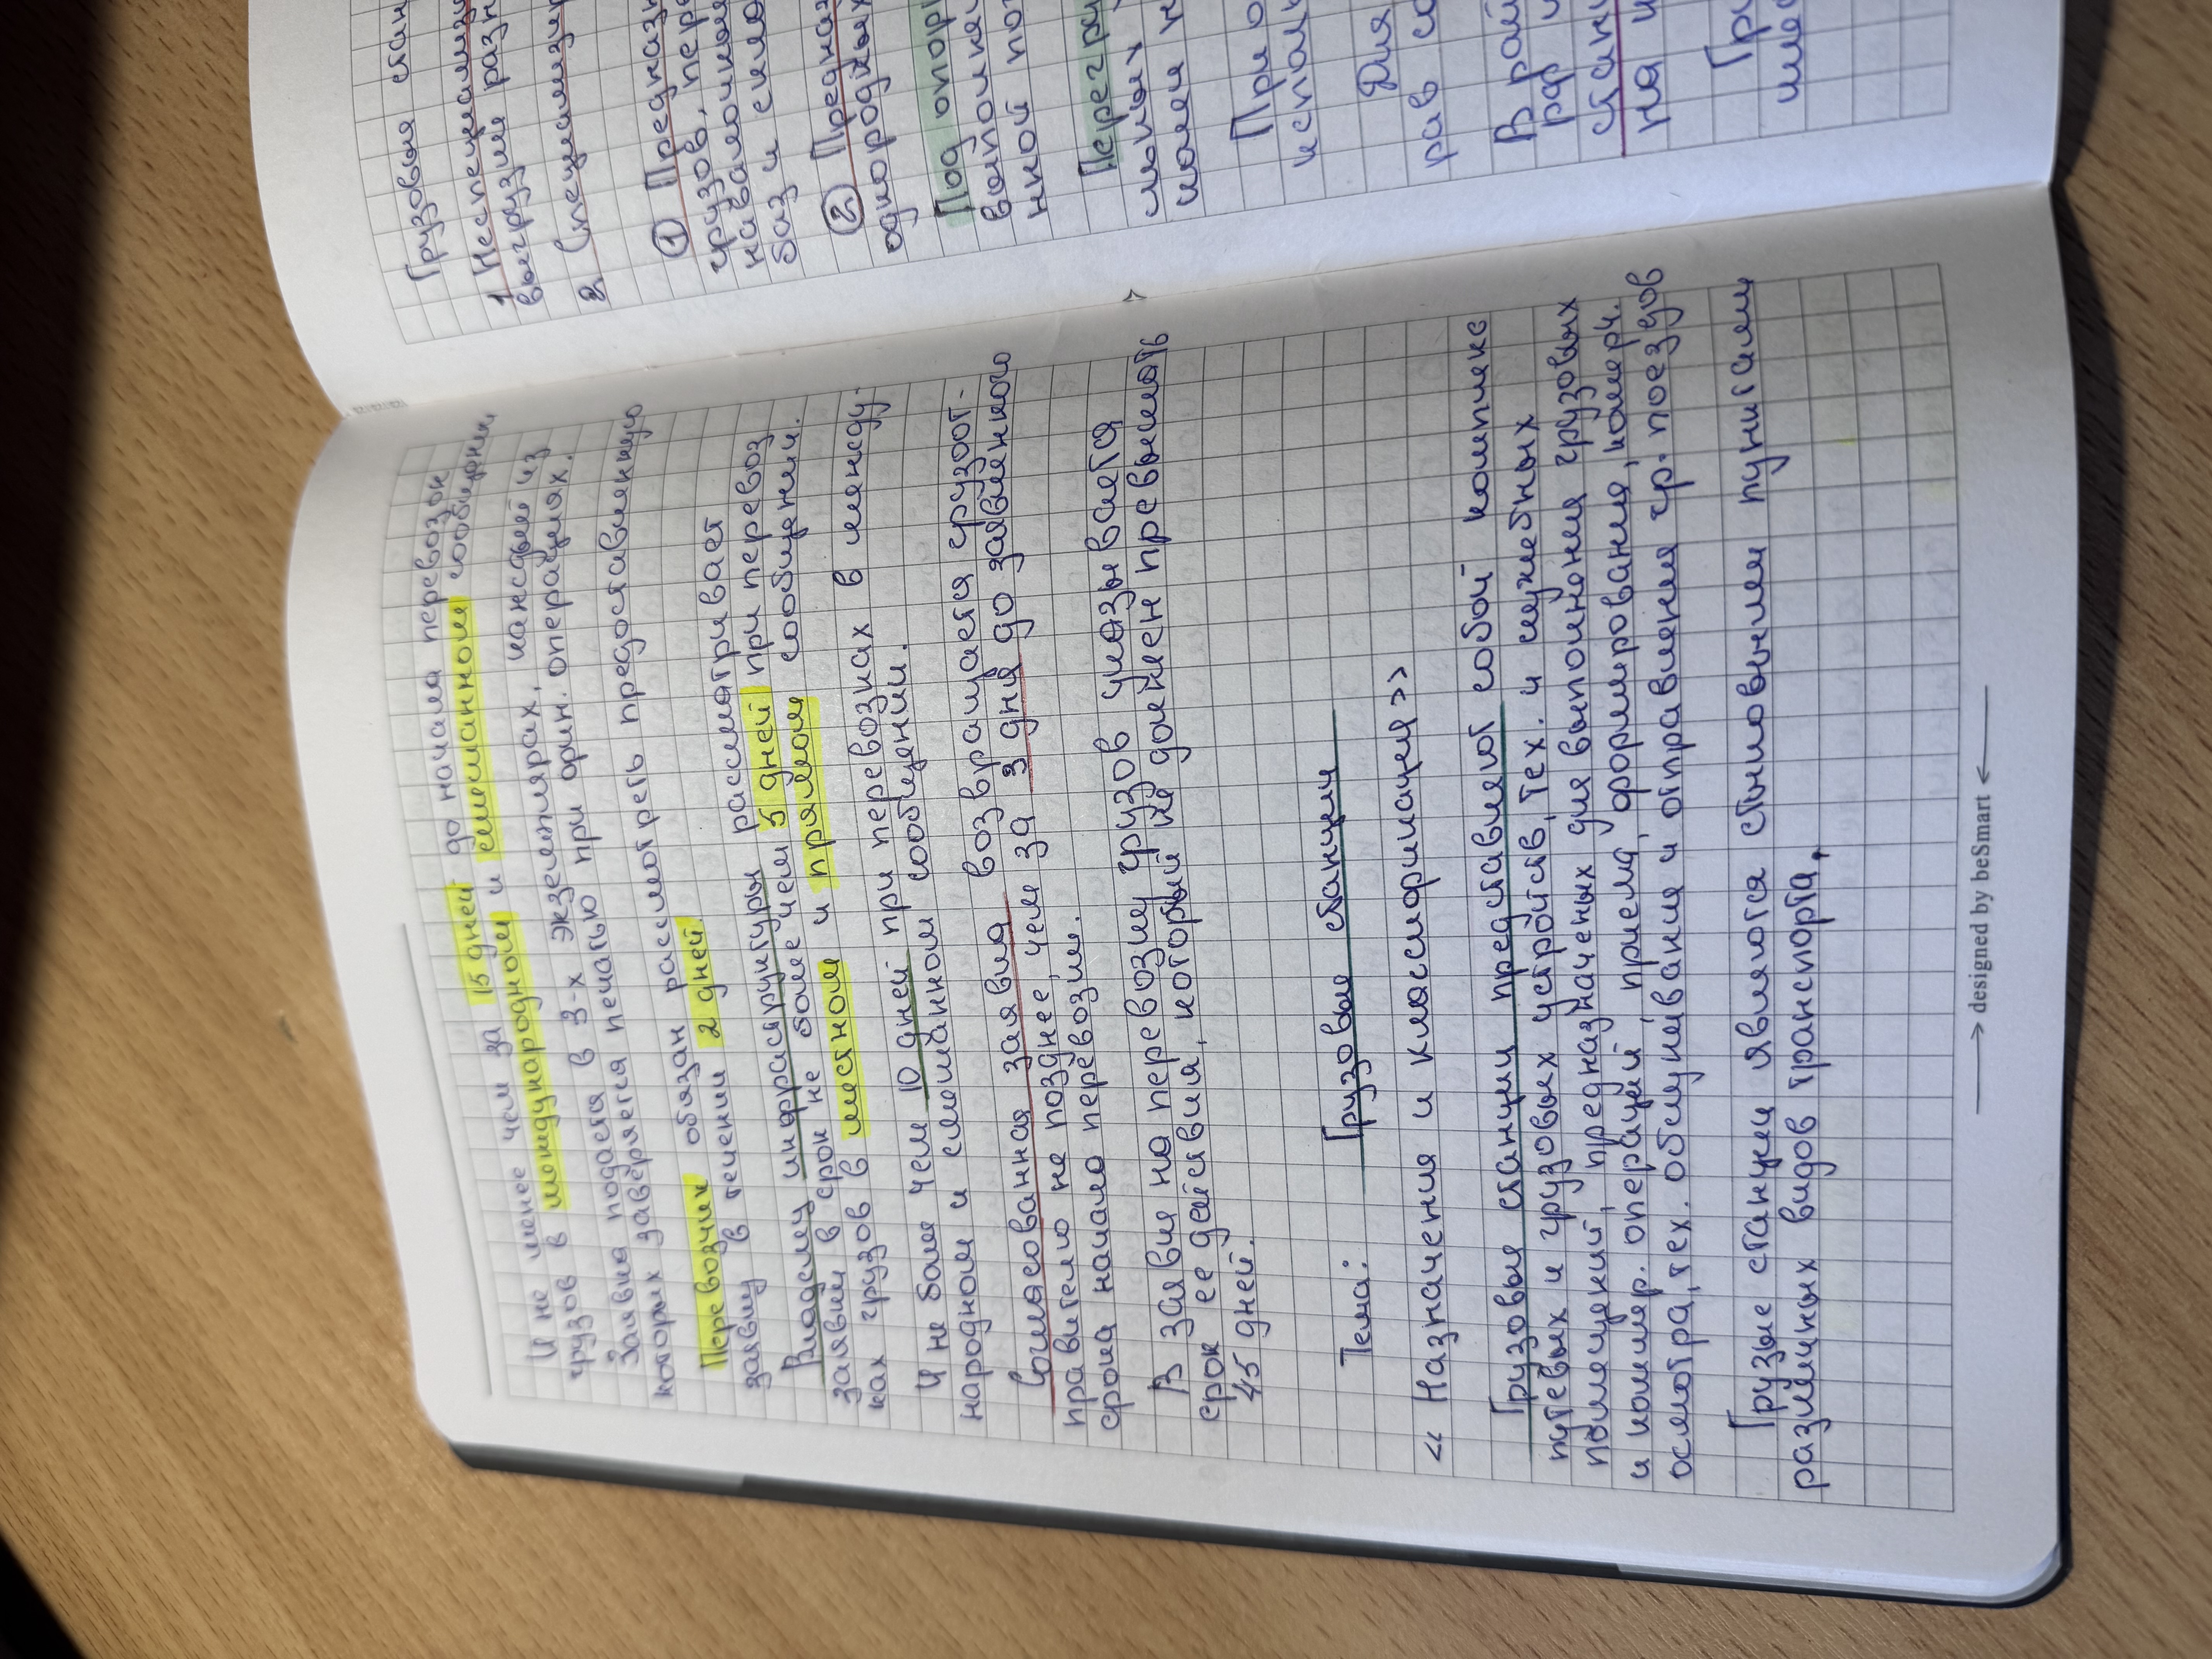 И не менее чем за 15 дней до начала перевозок
грузов в международном и смешанном сообщении
Заявка подается в 3-х экземплярах, каждый из
которых заверяется печатью при фин. операциях.
Перевозчик обязан рассмотреть предоставленную
заявку в течении 2 дней.
Владелец инфраструктуры рассматривает
заявки в срок не более чем 5 дней при перевоз
ках грузов в местном и прямом сообщении.
И не более чем 10 дней при перевозках в между-
народном и смешанном сообщении.
Согласованная заявка возвращается грузот-
правителю не позднее, чем за 3 дня до заявленного
срока начала перевозки.
В заявке на перевозку грузов указывается
срок ее действия, который не должен превышать
45 дней.
Тема: Грузовые станции
« Назначения и классификация»
Грузовые станции представляют собой комплекс
путевых и грузовых устройств, тех. и служебных
помещений, предназначеных для выполнения грузовых
и коммер. операций, приема, формирования, комерч.
осмотра, тех. обслуживания и отправления гр. поездов
Грузые станции являются стыковыми пунктами
различных видов транспорта.
Грузовые стан
1 Неспециализи
выгрузки разн
2. Специализир
① Предназн
грузов, пере
навалочных
баз и
② Предназ
однородных
Под опор
выполняе
нной по
Перегру
При о
исполь
Для
рав со
В рай
стан
на
Гр
→ designed by beSmart ←